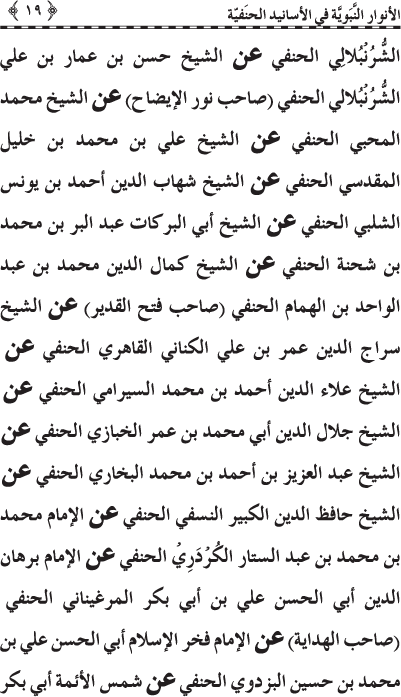 الأنوار النَّبَويَّة في الأسانيد الحنَفيّة ﴿ ١٩ ﴾
الشُّرُنْبُلالِي الحنفي عن الشيخ حسن بن عمار بن علي
الشُّرُنْبُلالي الحنفي (صاحب نور الإيضاح) عن الشيخ محمد
المحبي الحنفي عن الشيخ علي بن محمد بن خليل
المقدسي الحنفي عن الشيخ شهاب الدين أحمد بن يونس
الشلبي الحنفي عن الشيخ أبي البركات عبد البر بن محمد
بن شحنة الحنفي عن الشيخ كمال الدين محمد بن عبد
الواحد بن الهمام الحنفي (صاحب فتح القدير) عن الشيخ
سراج الدين عمر بن علي الكناني القاهري الحنفي عن
الشيخ علاء الدين أحمد بن محمد السيرامي الحنفي عن
الشيخ جلال الدين أبي محمد بن عمر الخبازي الحنفي عن
الشيخ عبد العزيز بن أحمد بن محمد البخاري الحنفي عن
الشيخ حافظ الدين الكبير النسفي الحنفي عن الإمام محمد
بن محمد بن عبد الستار الكُرْدَرِيُ الحنفي عن الإمام برهان
الدين أبي الحسن علي بن أبي بكر المرغيناني الحنفي
(صاحب الهداية) عن الإمام فخر الإسلام أبي الحسن علي بن
محمد بن حسين البزدوي الحنفي عن شمس الأئمة أبي بكر